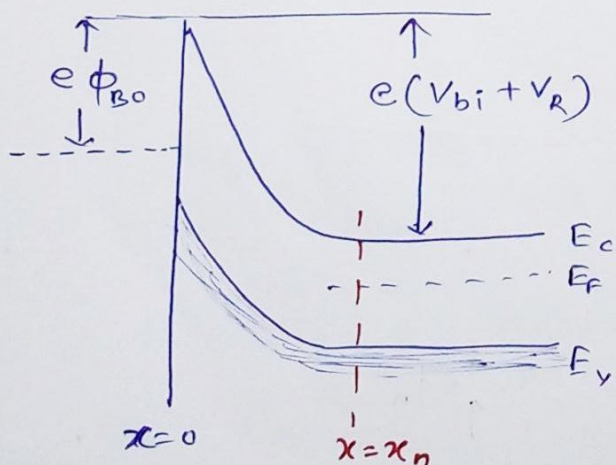 e ϕ_B0
e(V_bi + V_R)
E_c
E_F
E_v
x=0
x=x_n